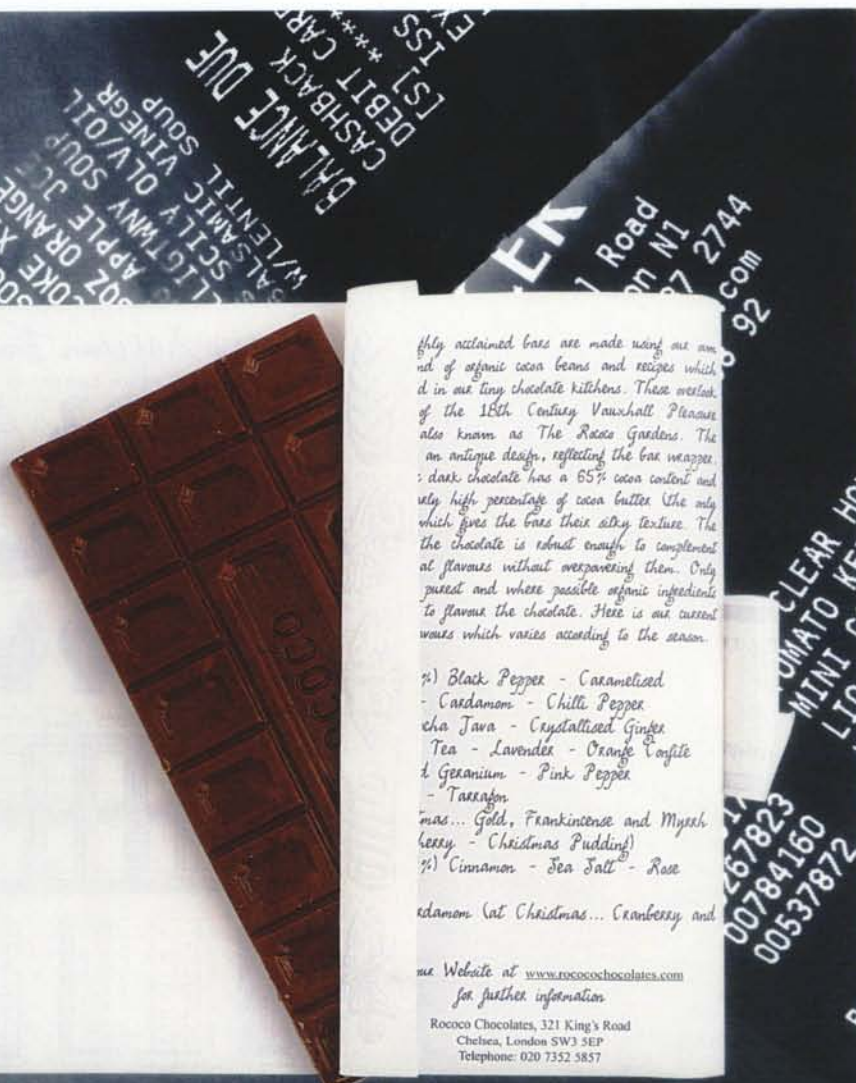 BALANCE DUE
CASHBACK
DEBIT CARD
[S] ****
ISS
EX
COKE X
ORANGE
APPLE JCE
LLIGTWNY SOUP
SCILY OLV/OIL
BALSAMIC VINEGR
W/LENTIL SOUP
Road
on N1
2744
.com
92
ghly acclaimed bars are made using our own
nd of organic cocoa beans and recipes which
d in our tiny chocolate kitchens. These overlook
of the 18th Century Vauxhall Pleasure
also known as The Rococo Gardens. The
an antique design, reflecting the bar wrapper.
dark chocolate has a 65% cocoa content and
arly high percentage of cocoa butter (the only
which gives the bars their silky texture. The
the chocolate is robust enough to complement
al flavours without overpowering them. Only
purest and where possible organic ingredients
to flavour the chocolate. Here is our current
avours which varies according to the season.
%) Black Pepper - Caramelised
- Cardamom - Chilli Pepper
cha Java - Crystallised Ginger
Tea - Lavender - Orange Confite
d Geranium - Pink Pepper
- Tarragon
tmas... Gold, Frankincense and Myrrh
berry - Christmas Pudding)
%) Cinnamon - Sea Salt - Rose
rdamom (at Christmas... Cranberry and
our Website at www.rococochocolates.com
for further information
Rococo Chocolates, 321 King's Road
Chelsea, London SW3 5EP
Telephone: 020 7352 5857
OCOCO
CLEAR HO
TOMATO KE
MINI
267823
00784160
00537872